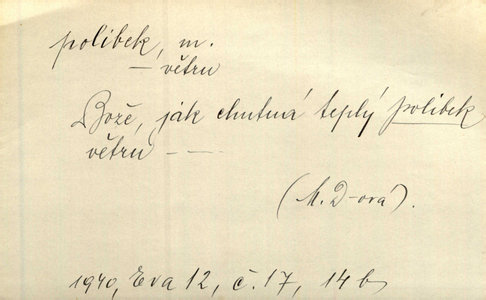 polibek, m.
— větru
Bože, jak chutná teplý polibek
větru — —
(M. D-ová).
1940, Eva 12, č. 17, 14 b